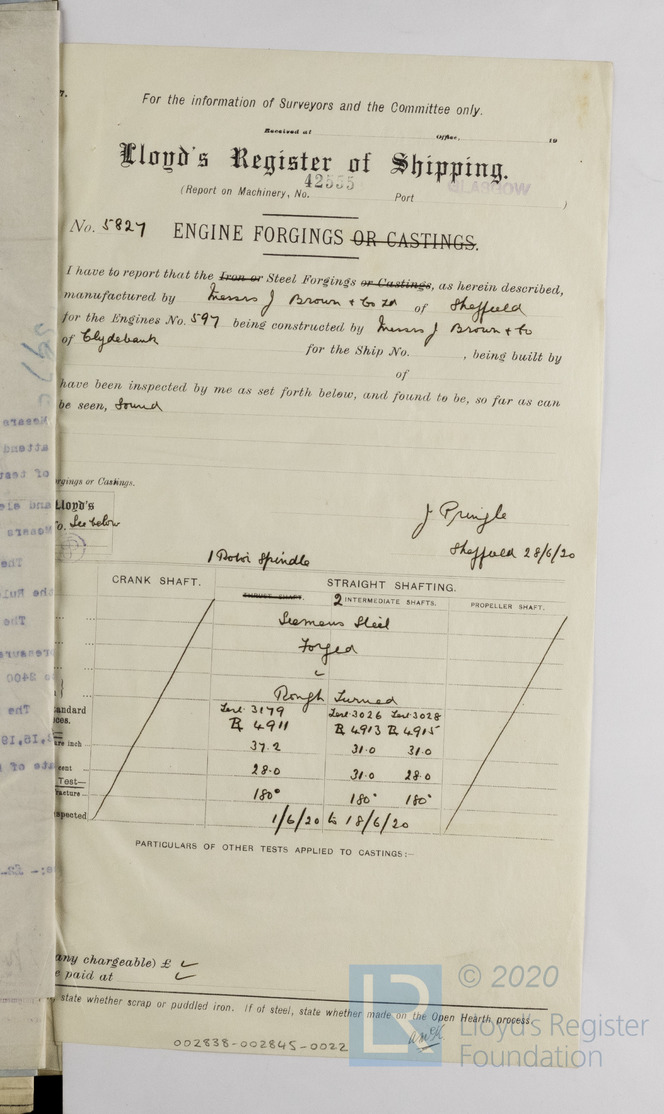 7.
For the information of Surveyors and the Committee only.
Received at Office, 19
Lloyd's Register of Shipping.
(Report on Machinery, No. 42555 Port )
No. 5827 ENGINE FORGINGS OR CASTINGS.
I have to report that the Iron or Steel Forgings or Castings, as herein described,
manufactured by Messrs J Brown & Co Ld of Sheffield
for the Engines No. 597 being constructed by Messrs J Brown & Co
of Clydebank for the Ship No. , being built by
of
have been inspected by me as set forth below, and found to be, so far as can
be seen, Sound
rgings or Castings.
Lloyd's
o. See below
J Pringle
Sheffield 28/6/20
1 Rotor Spindle
CRANK SHAFT. STRAIGHT SHAFTING.
THRUST SHAFT. 2 INTERMEDIATE SHAFTS. PROPELLER SHAFT.
Siemens Steel
Forged
Rough Turned
andard Test 3179 Test 3026 Test 3028
ces. R 4911 R 4913 R 4915
are inch 37.2 31.0 31.0
cent 28.0 31.0 28.0
Test—
racture 180° 180° 180°
spected 1/6/20 to 18/6/20
PARTICULARS OF OTHER TESTS APPLIED TO CASTINGS:—
any chargeable) £
e paid at
state whether scrap or puddled iron. If of steel, state whether made on the Open Hearth process.
002838-002845-0022
LR
© 2020
Lloyd's Register
Foundation